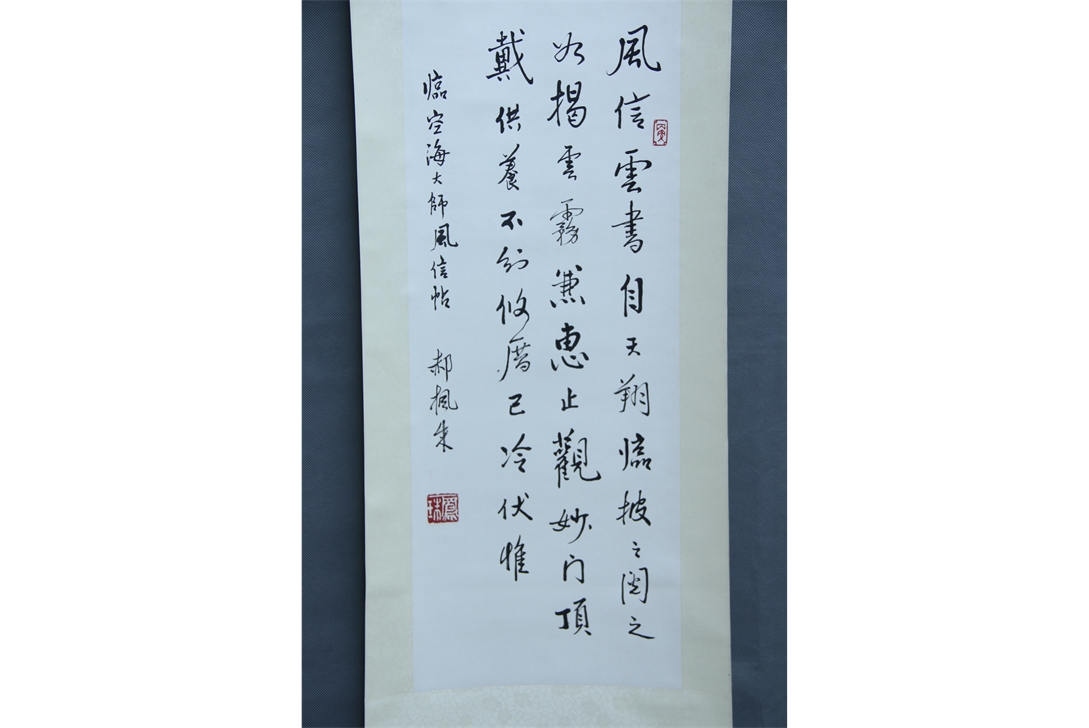 風信雲書自天翔臨披之閱之
如揭雲霧兼惠止觀妙門頂
戴供養不知攸厝已冷伏惟
臨空海大師風信帖 郝楓朱